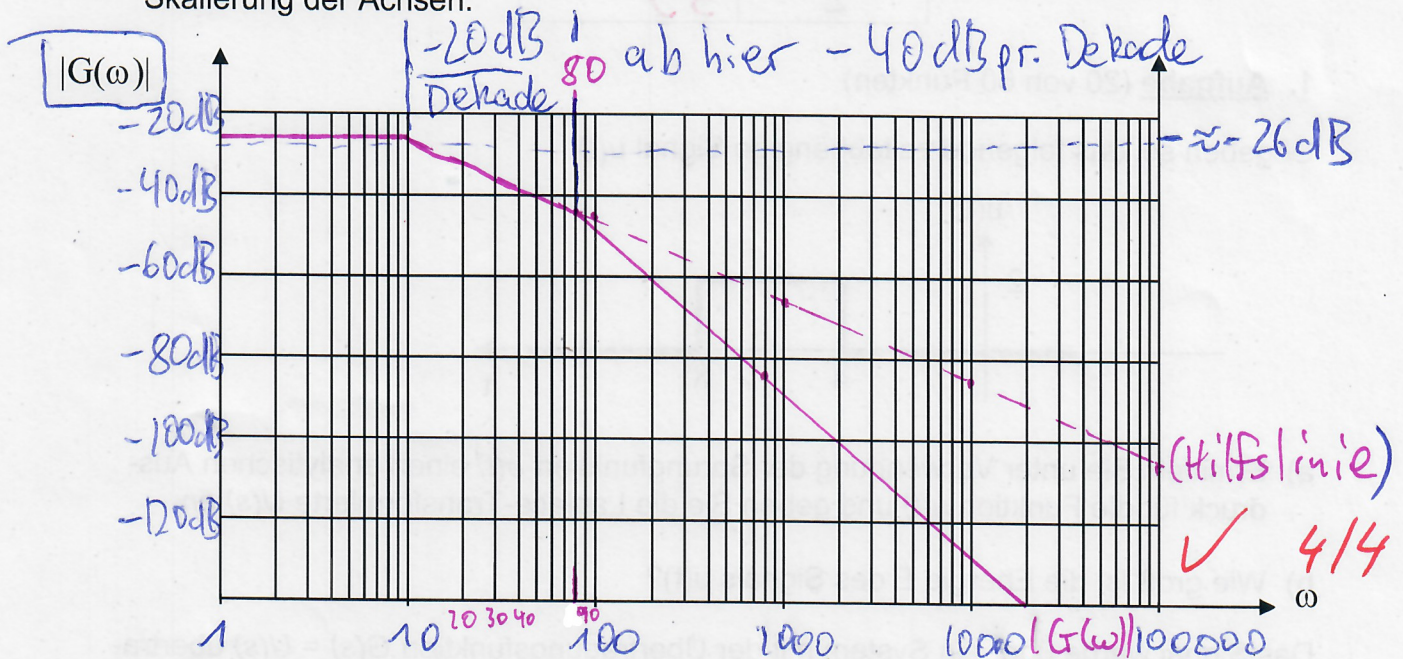 Skalierung der Achsen.
|G(ω)|
-20dB
Dekade
80
ab hier -40dB pr. Dekade
-20dB
-≈-26dB
-40dB
-60dB
-80dB
-100dB
(Hilfslinie)
-120dB
✓ 4/4
ω
20 30 40
90
1 10 100 1000 10000 |G(ω)| 100000